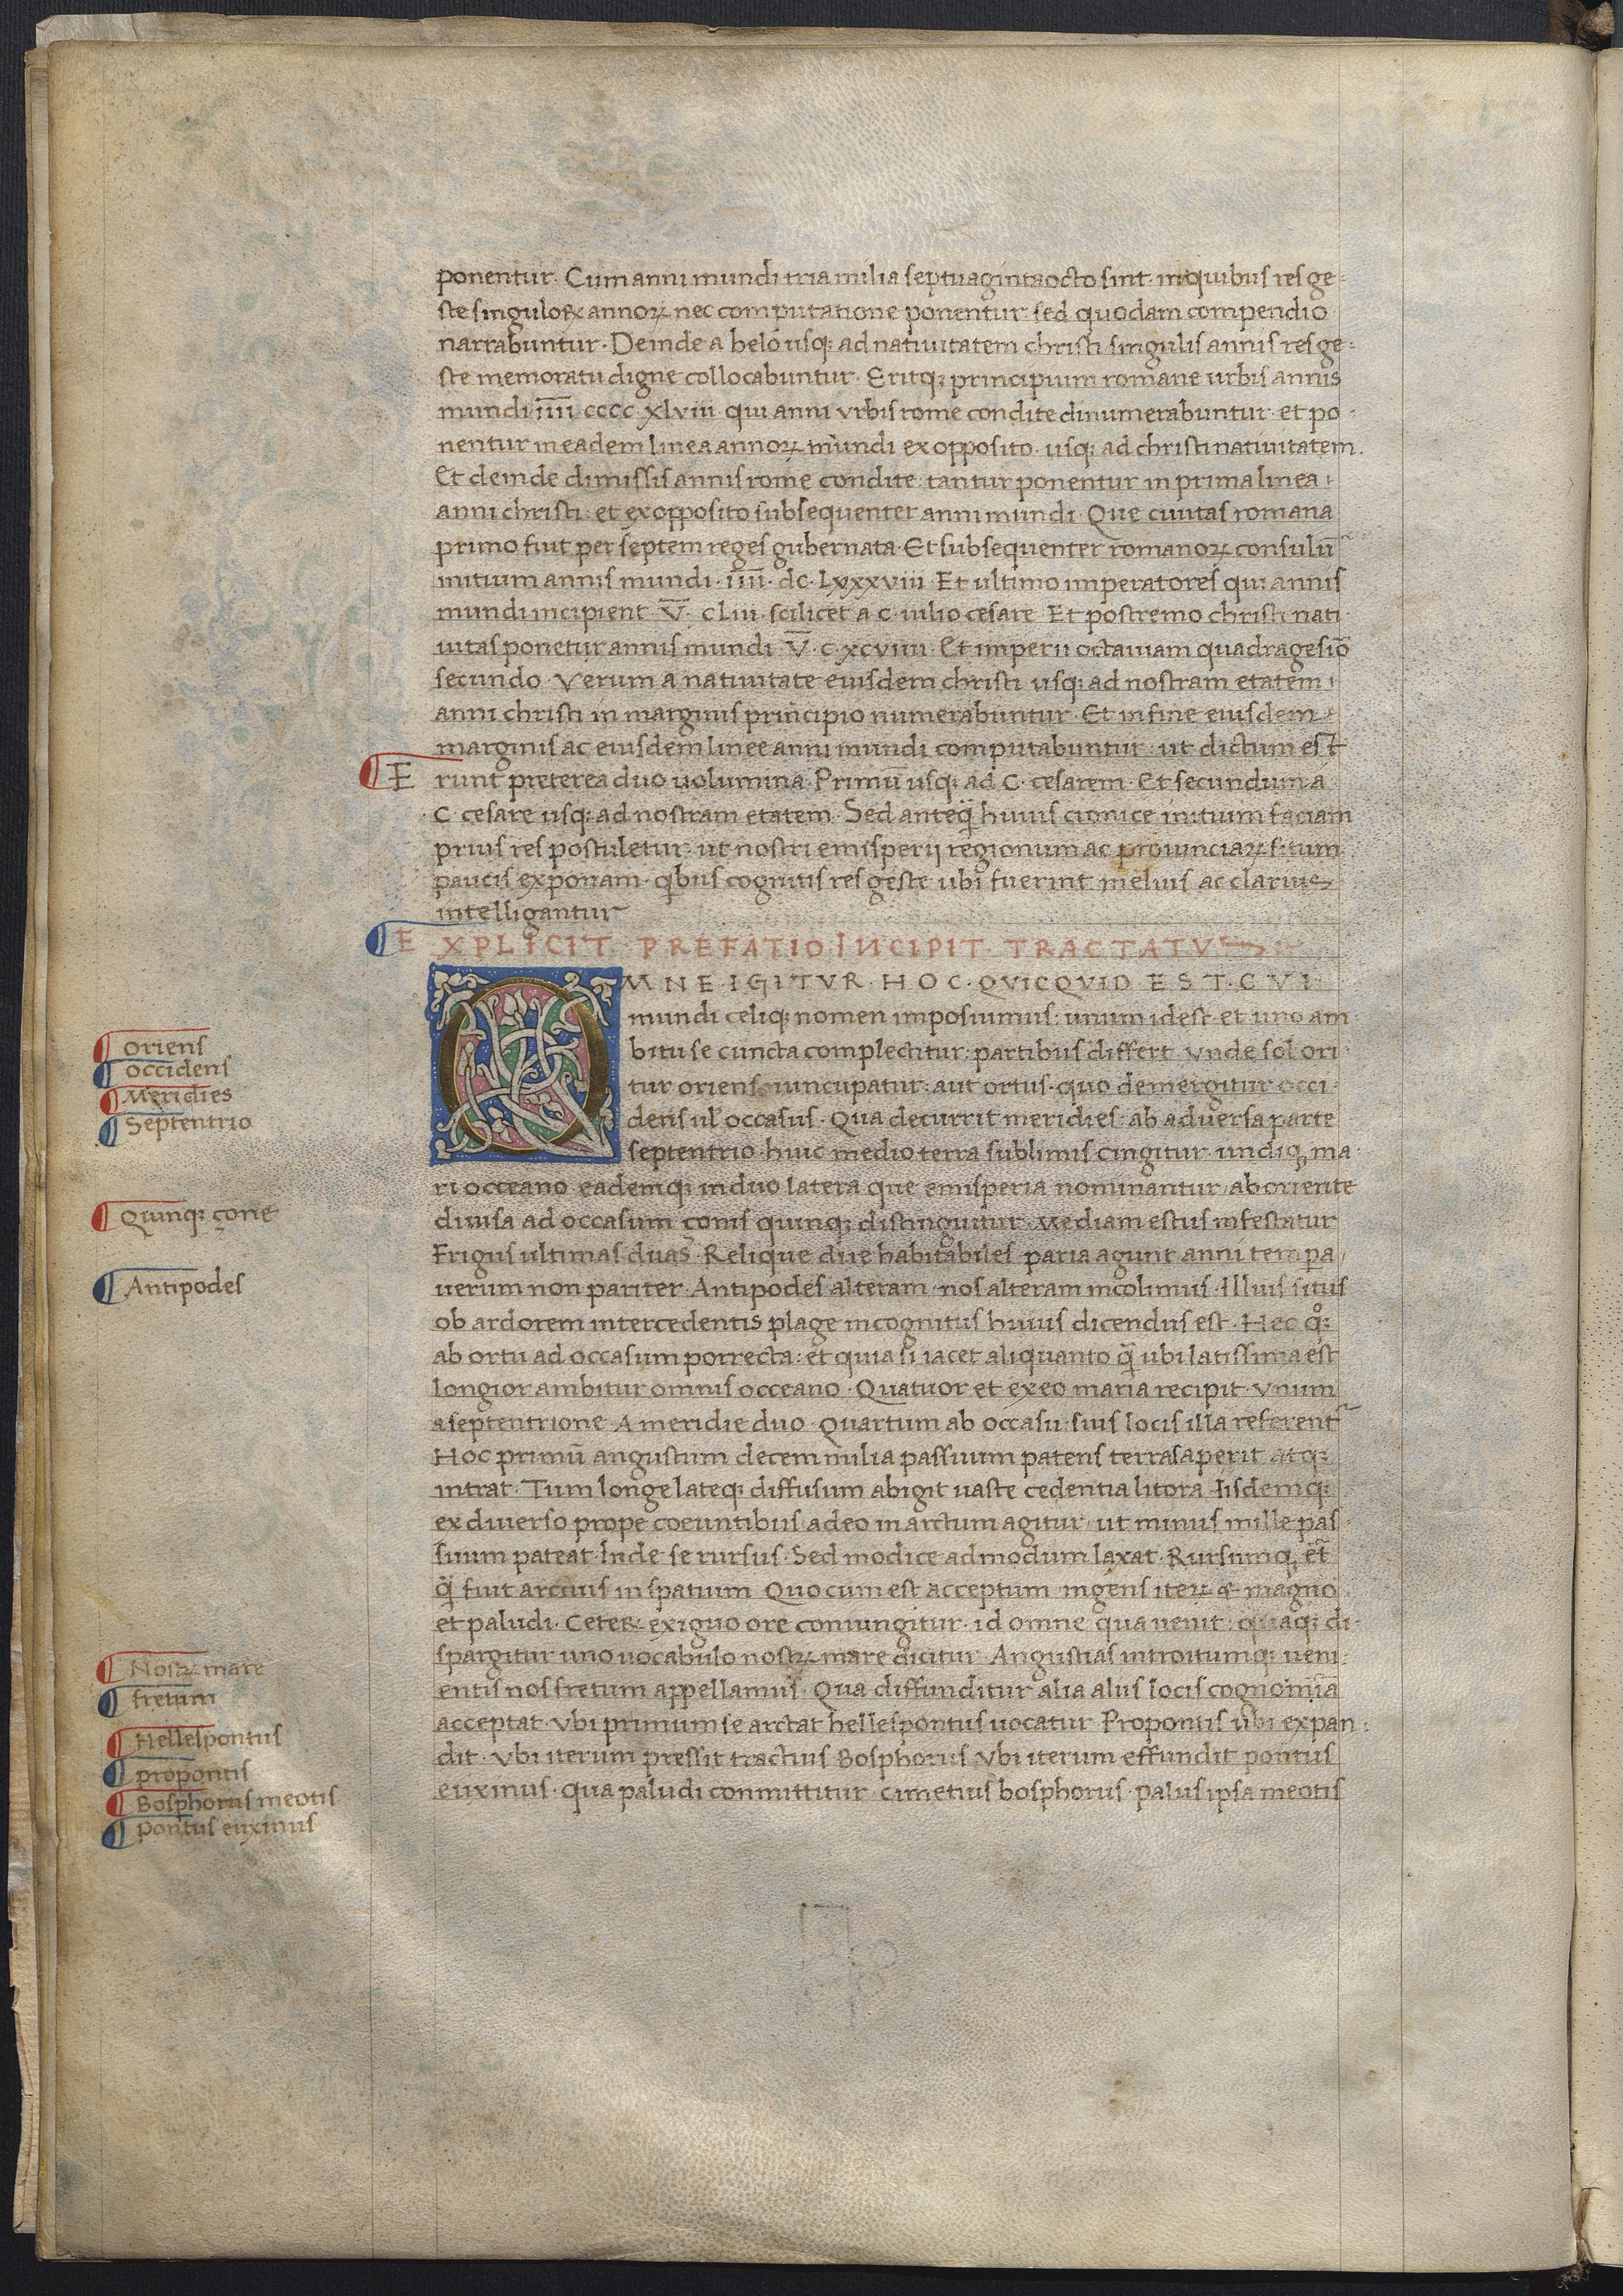 ponentur. Cum anni mundi tria milia septuaginta octo sint. in quibus res ge-
ste singuloꝝ annoꝝ nec computatione ponentur: sed quodam compendio
narrabuntur. Deinde a belo usqꝫ ad natiuitatem christi singulis annis res ge-
ste memoratu digne collocabuntur. Eritqꝫ principium romane urbis annis
mundi i̅i̅i̅i̅ cccc xlviii. qui anni vrbis rome condite dinumerabuntur. et po-
nentur in eadem linea annoꝝ mundi ex opposito. usqꝫ ad christi natiuitatem.
Et deinde dimissis annis rome condite: tantur ponentur in prima linea
anni christi: et ex opposito subsequenter anni mundi. Que ciuitas romana
primo fuit per septem reges gubernata. Et subsequenter romanoꝝ consulū
initium annis mundi. i̅i̅i̅i̅. dc. Lxxxviii. Et ultimo imperatores qui annis
mundi incipient V̅. cLiii. scilicet a c. iulio cesare. Et postremo christi nati
uitas ponetur annis mundi. V̅. c. xcviiii. Et imperii octauiani quadragesiō
secundo. Verum a natiuitate eiusdem christi usqꝫ ad nostram etatem
anni christi in marginis principio numerabuntur. Et in fine eiusdem
marginis ac eiusdem linee anni mundi computabuntur: ut dictum est
E runt preterea duo uolumina. Primū usqꝫ ad C. cesarem. Et secundum a
C. cesare usqꝫ ad nostram etatem. Sed anteq̄ huius cronice initium faciam
prius res postuletur: ut nostri emisperij regionum ac prouinciaꝝ situm
paucis exponam. qibus cognitis res geste ubi fuerint melius ac clarius
intelligantur
E XPLICIT. PREFATIO INCIPIT. TRACTATV
OMNE. IGITVR. HOC. QVICQVID EST. CVI
mundi celiqꝫ nomen imposiumus: unum id est. et uno am
bitu se cuncta complectitur: partibus differt. vnde sol ori
tur oriens nuncupatur: aut ortus. quo demergitur occi-
dens ul' occasus. Qua decurrit meridies: ab aduersa parte
septentrio. huic medio terra sublimis cingitur undiqꝫ ma-
ri occeano. eademqꝫ in duo latera que emisperia nominantur ab oriente
diuisa ad occasum çonis quinqꝫ distinguitur. Mediam estus infestatur
Frigus ultimas duas. Relique due habitabiles paria agunt anni tempa
uerum non pariter. Antipodes alteram. nos alteram incolimus. illius situs
ob ardorem intercedentis plage incognitus huius dicendus est. Hec
ab ortu ad occasum porrecta: et quia si iacet aliquanto q̄ ubi latissima est
longior ambitur omnis occeano. Quatuor et ex eo maria recipit. vnum
a septentrione. A meridie duo. Quartum ab occasu. suis locis illa referent
Hoc primū angustum decem milia passuum patens terras aperit atqꝫ
intrat. Tum longe lateqꝫ diffusum abigit uaste cedentia litora. Iisdemqꝫ
ex diuerso prope coeuntibus adeo in arctum agitur. ut minus mille pas
suum pateat. Inde se rursus. Sed modice admodum laxat. Rursumqꝫ et̄
q̄ fuit arctius in spatium. Quo cum est acceptum ingens iteꝝ & magno
et paludi. Ceteꝝ exiguo ore coniungitur. id omne qua uenit: quaqꝫ di-
spargitur uno uocabulo nostꝝ mare dicitur. Angustias introitumqꝫ ueni-
entis nos fretum appellamus. Qua diffunditur alia aliis locis cognomīa
acceptat. vbi primum se arctat hellespontus uocatur. Propontis ubi expan-
dit. vbi iterum pressit tractius Bosphorus. vbi iterum effundit pontus
euxinus. qua paludi conmittitur. cimetius bosphorus. palus ipsa meotis
oriens
occidens
Meridies
Septentrio
Quinqꝫ çone
Antipodes
Nostꝝ mare
fretum
Hellespontus
propontis
Bosphorus meotis
Pontus euxinus